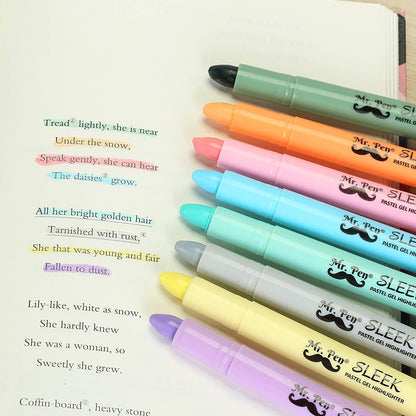 Tread② lightly, she is near
Under the snow,
Speak gently, she can hear
The daisies③ grow.
All her bright golden hair
Tarnished with rust,④
She that was young and fair
Fallen to dust.
Lily-like, white as snow,
She hardly knew
She was a woman, so
Sweetly she grew.
Coffin-board⑤, heavy stone
Mr. Pen®
PASTEL GEL
Mr. Pen® SLEEK
PASTEL GEL HIGHLIGHTER
Mr. Pen® SLEEK
PASTEL GEL HIGHLIGHTER
Mr. Pen® SLEEK
PASTEL GEL HIGHLIGHTER
Mr. Pen® SLEEK
PASTEL GEL HIGHLIGHTER
Mr. Pen® SLEEK
PASTEL GEL HIGHLIGHTER
Mr. Pen® SLEEK
PASTEL GEL HIGHLIGHTER
Mr. Pen® SLEEK